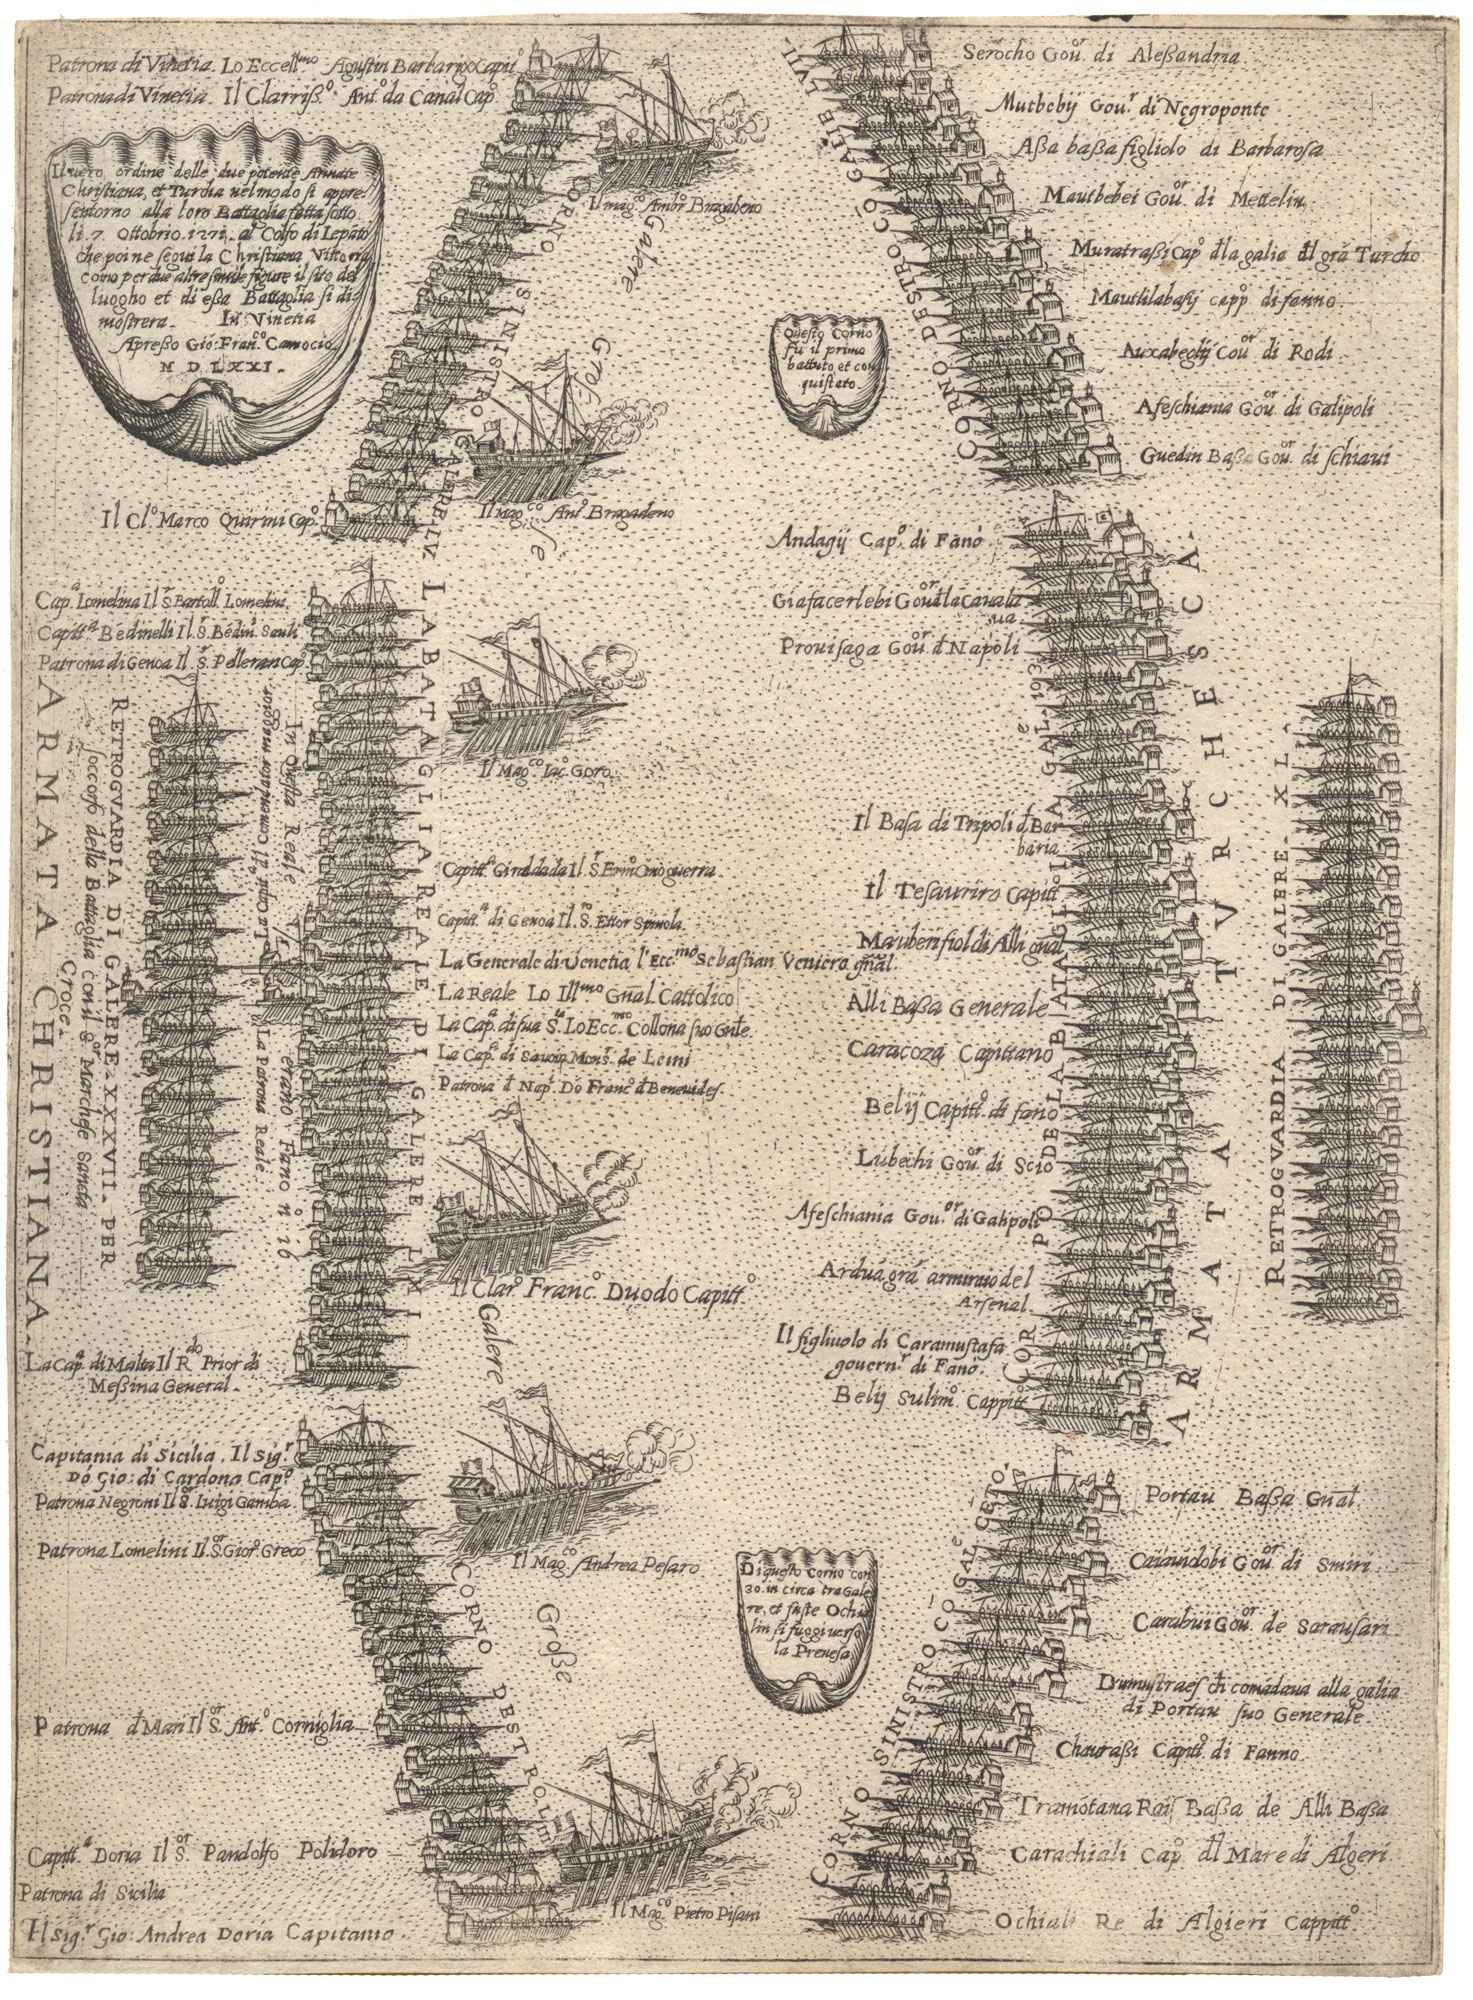 Patrona di Vinetia. Lo Eccell.mo Agustin Barbarigo Capit.o
Patrona di Vinetia. Il Clarriss.o Ant.o da Canal Cap.o
Il uero ordine delle due potente Armate
Christiana, et Turcha nel modo si appre
sentorno alla loro Battaglia fatta sotto
li. 7. Ottobrio. 1571. al Colfo di Lepãto
che poi ne segui la Christiana Vittoria
como per due altre simile figure il sito del
luogho et di eßa Battaglia si di
mostrera. In Vinetia
Apreßo Gio: Fran.co Camocio
M D LXXI.
Il mag.co Ambr.o Bragadeno
CORNO SINISTRO
GALERE LV
Galere Große
Il Mag.co Ant.o Bragadeno
Il Cl.o Marco Quirini Cap.o
Cap.a Lomelina Il S.r Bartoll. Lomelini
Capitt.a Bedinelli Il S.r Bedin. Sauli
Patrona di Genoa Il S.r Pelleran Cap.o
ARMATA CHRISTIANA.
RETROGVARDIA DI GALERE XXXVII. PER
soccorso della Battaglia con il S.or Marchese Sancta
Croce.
In questa Reale
erano Fano n.o 26
La Patrona Reale
LA BATAGLIA REALE DI GALERE LXI
Il Mag.co Iac.o Goro
Capitt.a Giraldada Il S.r
Capitt.a di Genoa Il S.r Ettor Spinola
La Generale di Venetia l'Ecc.mo Sebastian Veniero gñal.
La Reale Lo Ill.mo Gñal Cattolico
La Cap.a di sua S.ta Lo Ecc.mo Collona suo Gñle.
La Cap.a di Savoia Mons.r de Leini
Patrona d Nap. Do Franc.o d Benevides.
Il Clar.o Franc.o Duodo Capitt.o
La Cap.a di Malta Il R.do Prior di
Meßina General.
Capitania di Sicilia. Il Sig.r
Dó Gio: di Cardona Cap.o
Patrona Negroni Il S.or Luigi Gamba.
Patrona Lomelini Il S.or Gior. Greco
Galere Große
Il Mag.co Andrea Pesaro
CORNO DESTRO
Patrona d Mari Il S.r Ant.o Corniglia
Capitt.a Doria Il S.or Pandolfo Polidoro
Patrona di Sicilia
Il Sig.r Gio: Andrea Doria Capitanio.
Il Mag.co Pietro Pisani
CORNO DESTRO CÕ GALE LVII
Serocho Gou.or di Aleßandria
Mutbebÿ Gou.r di Negroponte
Aßa baßa figliolo di Barbarosa
Mautbebei Gou.or di Mettelin
Muratraßi Cap.o dla galia dl grã Turcho
Mautlilabasÿ capp.o di fanno.
Auxabeglÿ Gou.or di Rodi.
Afeschiania Gou.or di Galipoli
Guedin Baßa Gou.or di schiaui
Questo Corno
fu il primo
battuto et con
quistato.
Andagÿ Cap.o di Fano
Giafacerlebi Gou.or dla Cauala
Prouisaga Gou.or d Napoli
Il Basa di Tripoli d Bar
baria
Il Tesauriro Capitt.o
Mauben fiol di Alli gñal
Alli Baßa Generale
Caracoza Capittano
Belÿ Capitt.o di fano
Lubechi Gou.or di Scio
Afeschiania Gou.or di Galipoli
Ardua grã armiraio del
Arsenal.
Il figliuolo di Caramustafa
gouern.r di Fano.
Belÿ Sulim.o Cappitt.o
COR PO DE LA BATAGLIA GAL.e 193
ARMATA TVRCHESCA.
RETROGVARDIA DI GALERE. XL
CORNO SINISTRO CÕ GALE CETO.
Portau Baßa Gñal.
Caiaudobi Gou.or di Smiri
Carabui Gou.or de Sarausari
Drumustraes ch comãdaua alla galia
di Portau suo Generale.
Chauraßi Capitt.o di Fanno.
Tramõtana Rais Baßa de Alli Baßa
Carachiali Cap.o dl Mare di Algeri.
Ochiali Re di Algieri Cappitt.o
Di questo Corno con
30. in circa tra Gale
re, et fuste Ochia
lin si fuggi uerso
la Preuesa